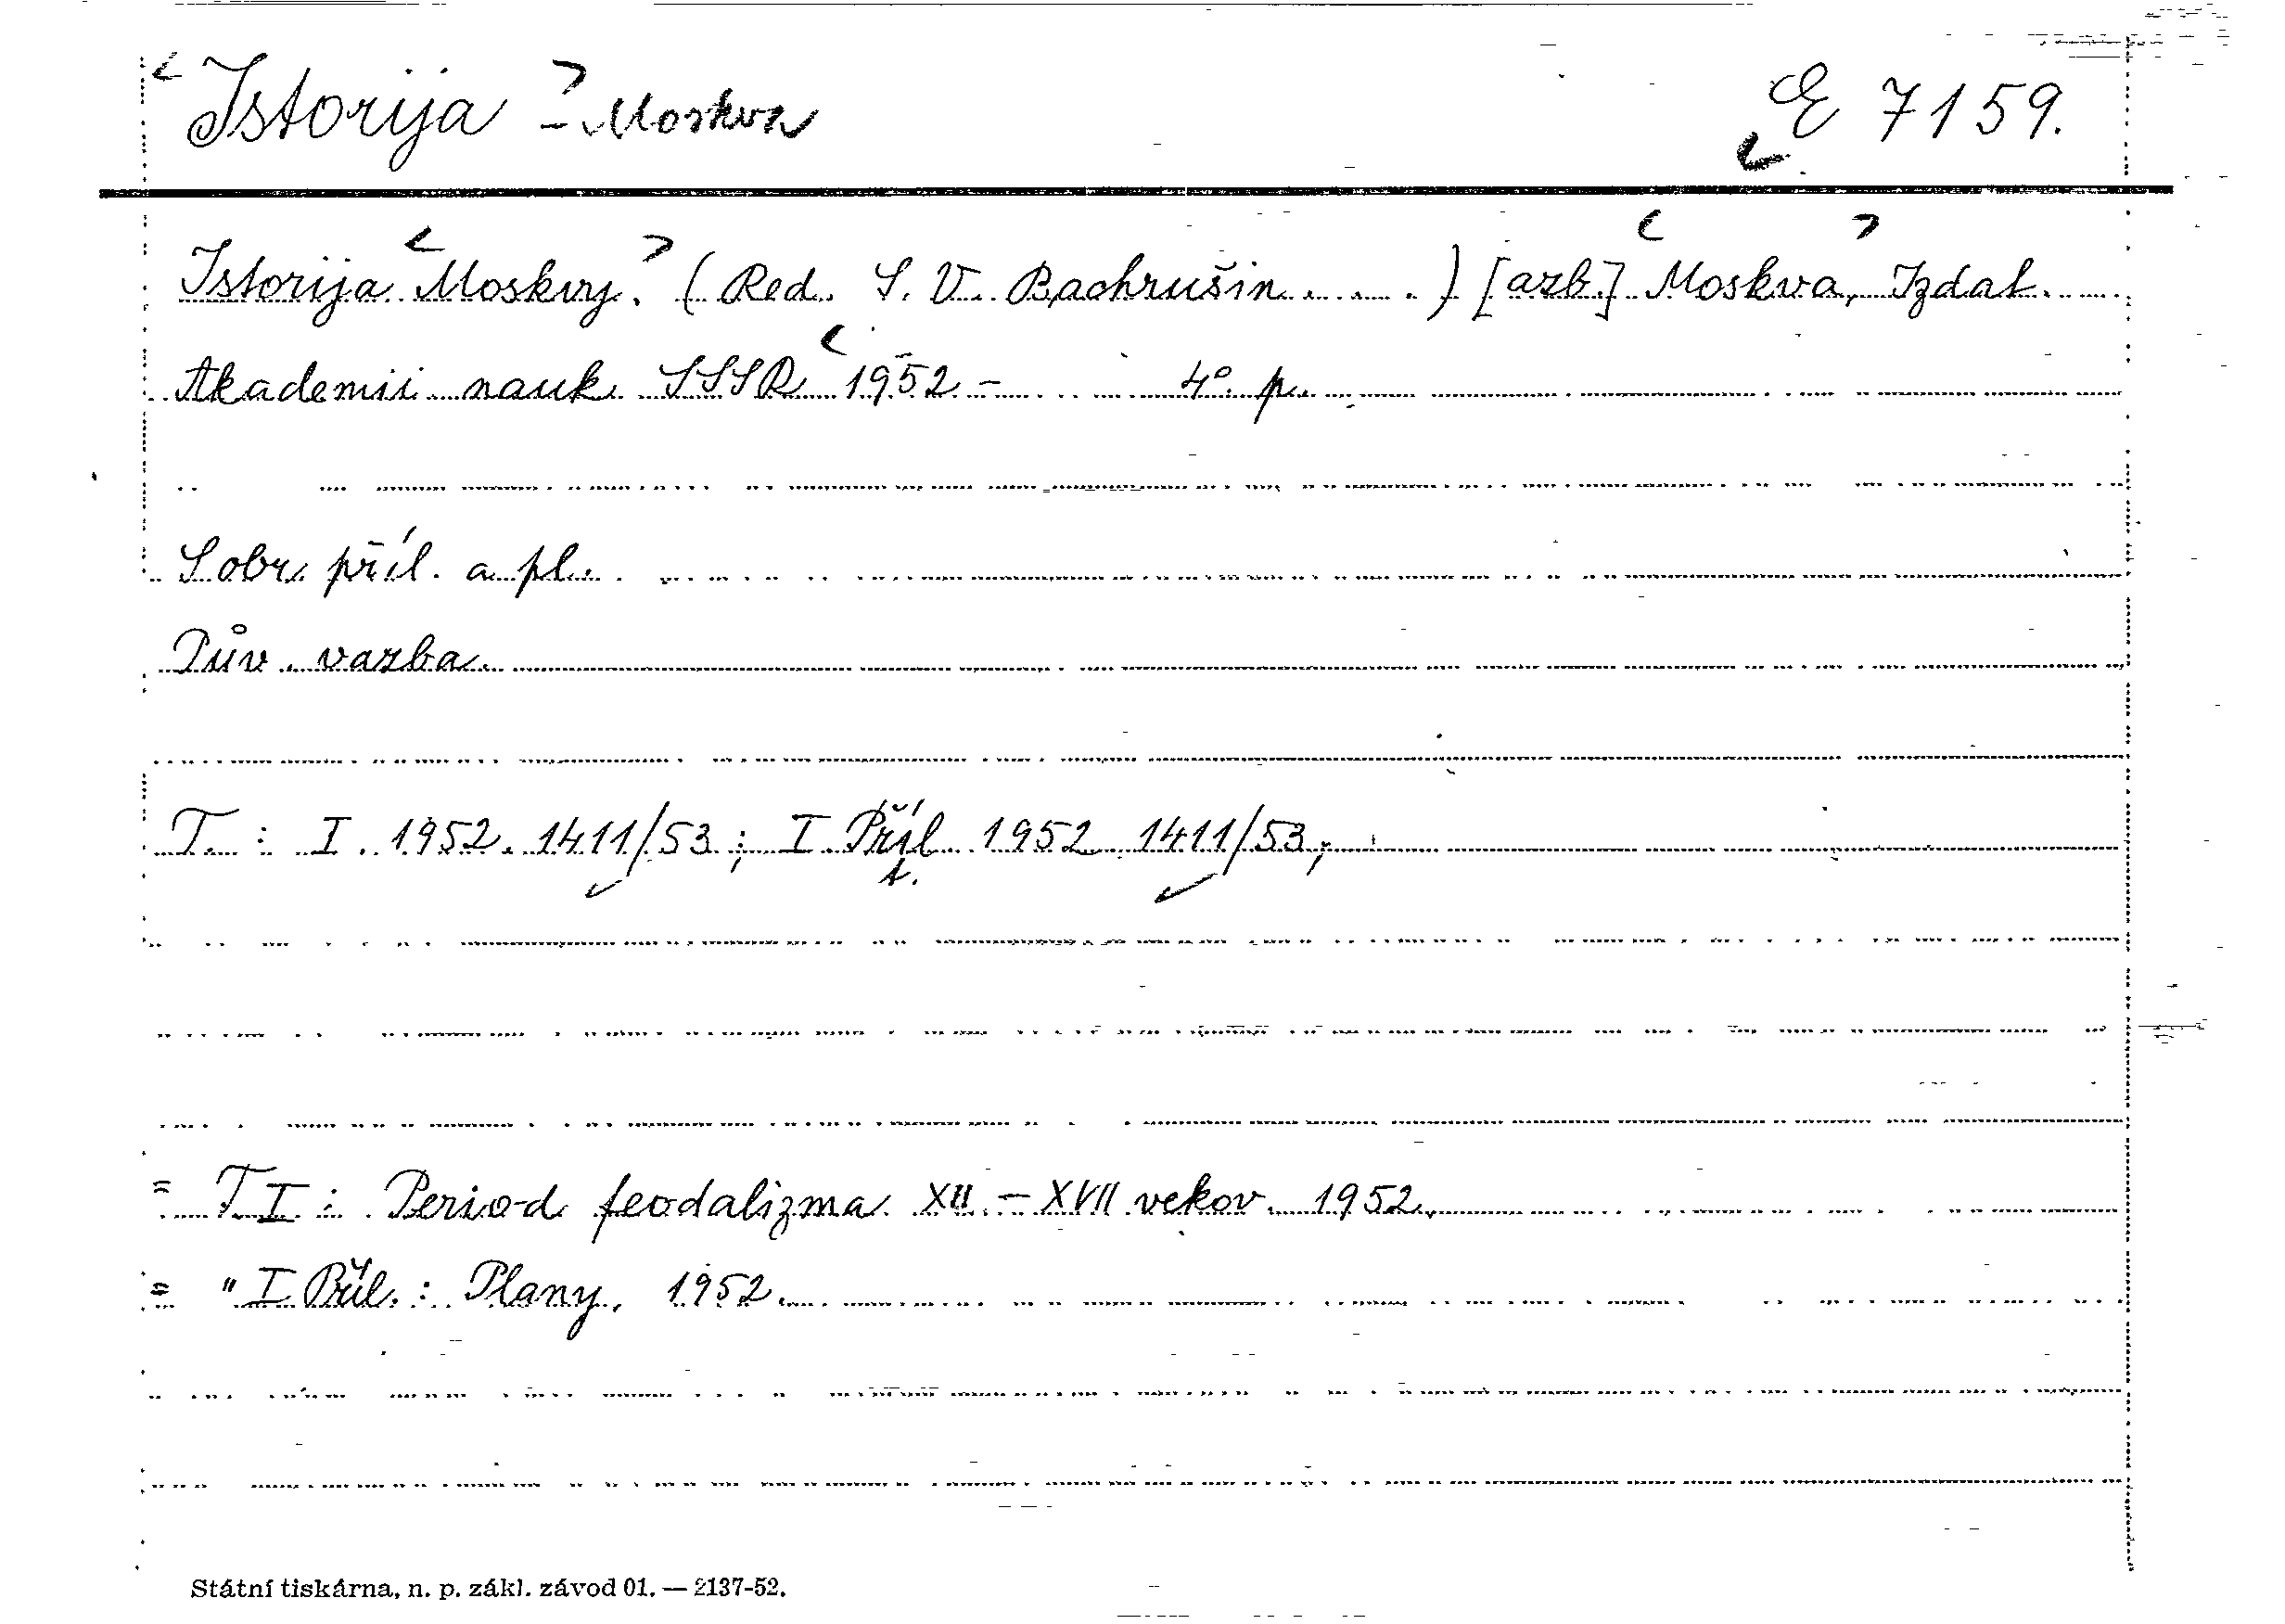 Istorija - Moskva E 7159.
Istorija Moskvy. (Red. S. V. Bachrušin .....) [azb.] Moskva, Izdat.
Akademii nauk SSSR 1952 - 4° p.
S obr. příl. a pl.
Pův. vazba.
T. : I. 1952. 1411/53 ; I Příl 1952 1411/53 ;
1.
= T I : Period feodalizma XII - XVII vekov. 1952.
= " I Příl. : Plany. 1952.
Státní tiskárna, n. p. zákl. závod 01. — 2137-52.